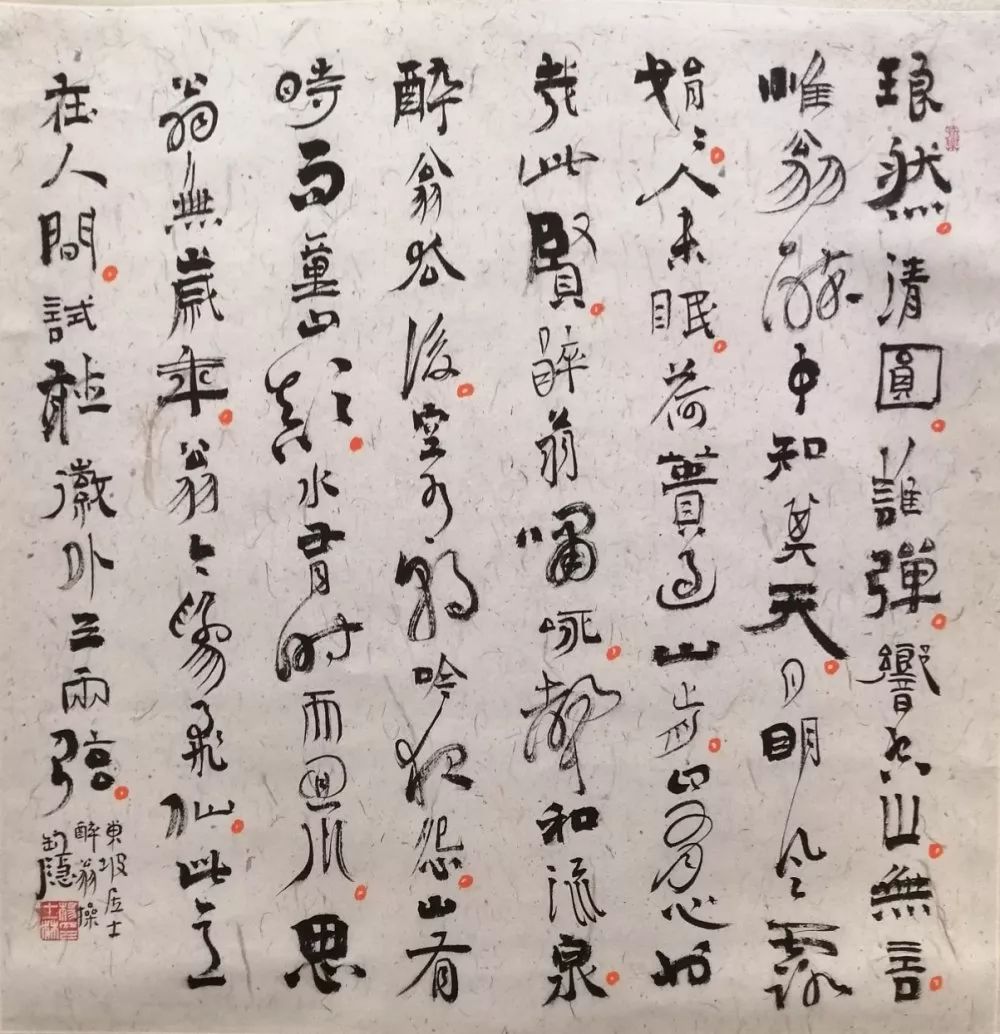 琅然清圓誰彈響空山無言
唯翁醉中知其天月明风露
娟〻人未眠荷蕢過山前曰有心也
哉此賢醉翁嘯咏聲和流泉
醉翁去後空有朝吟夜怨山有
時而童巔水有时而回川思
翁無歲年翁今為飛仙此意
在人間試聽徽外三兩弦
東坡居士
醉翁操
隱